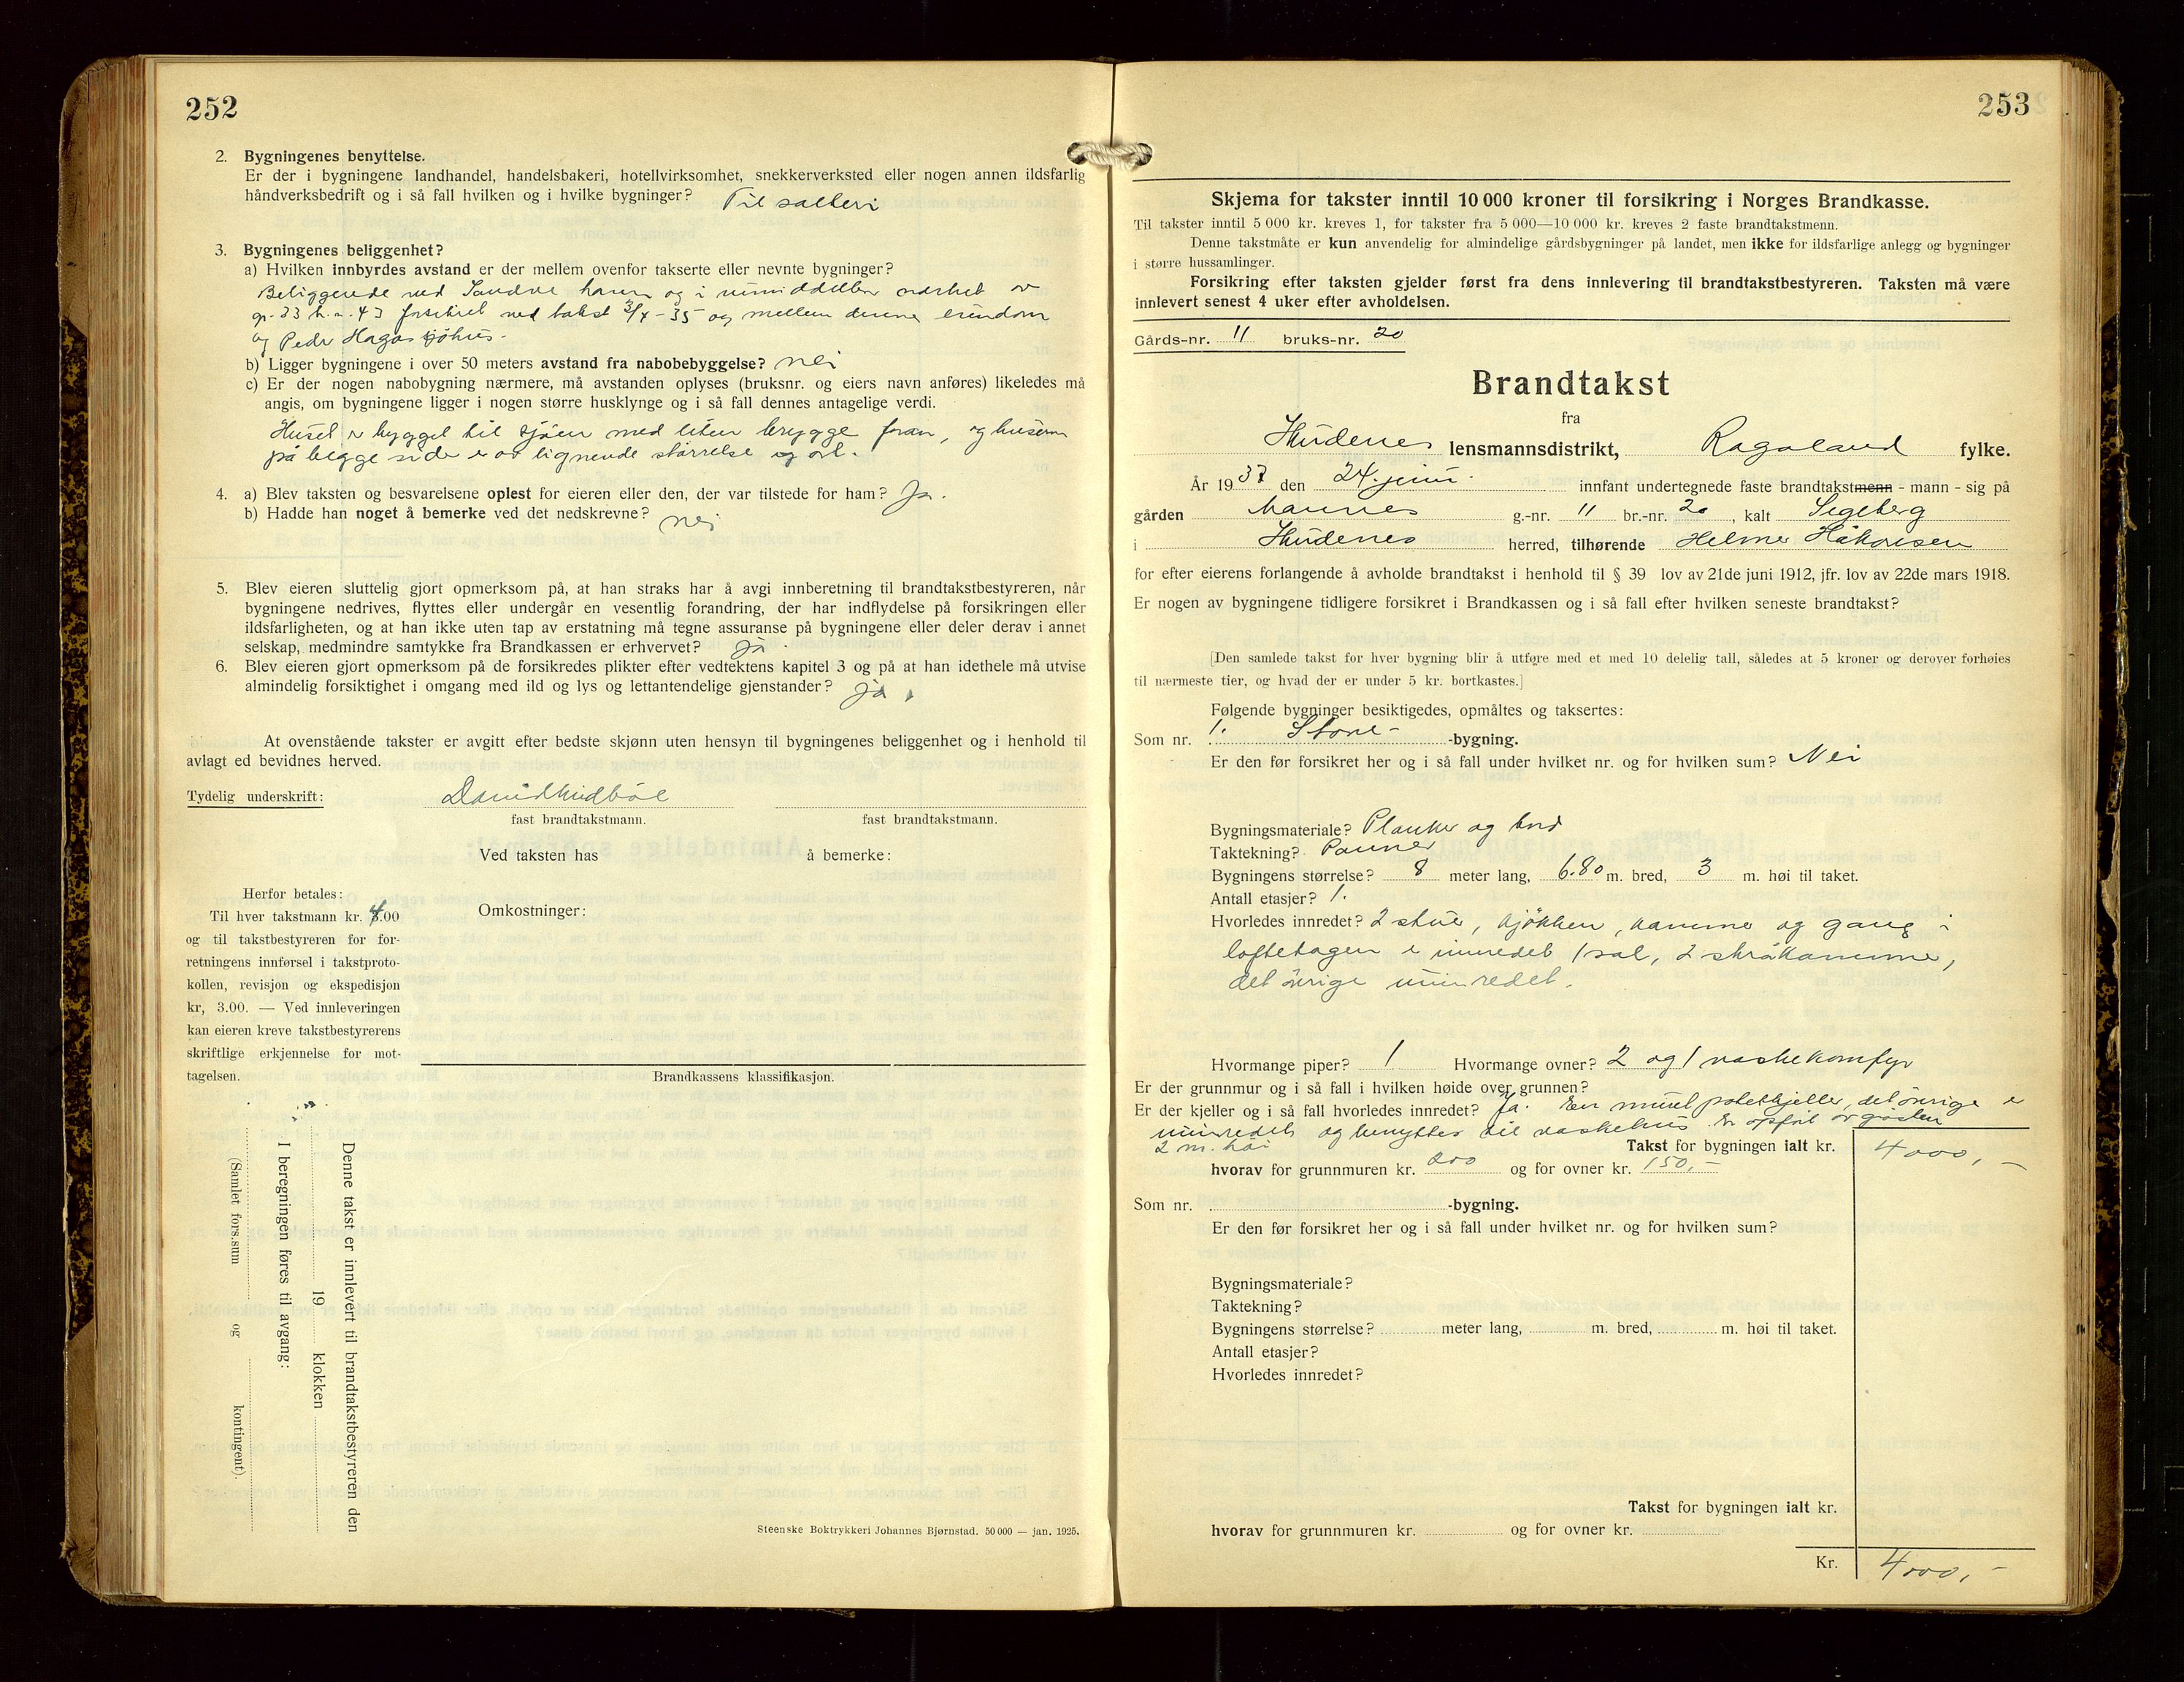 252
2. Bygningenes benyttelse.
Er der i bygningene landhandel, handelsbakeri, hotellvirksomhet, snekkerverksted eller nogen annen ildsfarlig
håndverksbedrift og i så fall hvilken og i hvilke bygninger? Til salteri
3. Bygningenes beliggenhet?
a) Hvilken innbyrdes avstand er der mellem ovenfor takserte eller nevnte bygninger?
Beliggende ved Sandve havn og i umiddelbar nærhet av
gr. 23 b.n. 43 forsikret ved takst 3/x-35 og mellem denne eiendom
og Peder Hagas sjøhus.
b) Ligger bygningene i over 50 meters avstand fra nabobebyggelse? nei
c) Er der nogen nabobygning nærmere, må avstanden oplyses (bruksnr. og eiers navn anføres) likeledes må
angis, om bygningene ligger i nogen større husklynge og i så fall dennes antagelige verdi.
Huset er bygget til sjøen med liten brygge foran, og husene
på begge sider er av lignende størrelse og art.
4. a) Blev taksten og besvarelsene oplest for eieren eller den, der var tilstede for ham? Ja.
b) Hadde han noget å bemerke ved det nedskrevne? nei
5. Blev eieren sluttelig gjort opmerksom på, at han straks har å avgi innberetning til brandtakstbestyreren, når
bygningene nedrives, flyttes eller undergår en vesentlig forandring, der har indflydelse på forsikringen eller
ildsfarligheten, og at han ikke uten tap av erstatning må tegne assuranse på bygningene eller deler derav i annet
selskap, medmindre samtykke fra Brandkassen er erhvervet? ja.
6. Blev eieren gjort opmerksom på de forsikredes plikter efter vedtektens kapitel 3 og på at han idethele må utvise
almindelig forsiktighet i omgang med ild og lys og lettantendelige gjenstander? ja.
At ovenstående takster er avgitt efter bedste skjønn uten hensyn til bygningenes beliggenhet og i henhold til
avlagt ed bevidnes herved.
Tydelig underskrift: David
fast brandtakstmann. fast brandtakstmann.
Ved taksten has å bemerke:
Herfor betales:
Til hver takstmann kr. 4.00
og til takstbestyreren for for-
retningens innførsel i takstproto-
kollen, revisjon og ekspedisjon
kr, 3.00. — Ved innleveringen
kan eieren kreve takstbestyrerens
skriftlige erkjennelse for mot-
tagelsen.
Omkostninger:
Brandkassens klassifikasjon.
Denne takst er innlevert til brandtakstbestyreren den
19 klokken
I beregningen føres til avgang:
(Samlet fors.sum og kontingent).
Steenske Boktrykkeri Johannes Bjørnstad. 50 000 — jan. 1925.
253
Skjema for takster inntil 10 000 kroner til forsikring i Norges Brandkasse.
Til takster inntil 5 000 kr. kreves 1, for takster fra 5 000—10 000 kr. kreves 2 faste brandtakstmenn.
Denne takstmåte er kun anvendelig for almindelige gårdsbygninger på landet, men ikke for ildsfarlige anlegg og bygninger
i større hussamlinger.
Forsikring efter taksten gjelder først fra dens innlevering til brandtakstbestyreren. Taksten må være
innlevert senest 4 uker efter avholdelsen.
Gårds-nr. 11 bruks-nr. 20
Brandtakst
fra
Skudenes lensmannsdistrikt, Rogaland fylke.
År 1937 den 24. juni. innfant undertegnede faste brandtakstmenn - mann - sig på
gården g.-nr. 11 br.-nr. 20, kalt
i Skudenes herred, tilhørende Helmer Håkonsen
for efter eierens forlangende å avholde brandtakst i henhold til § 39 lov av 21de juni 1912, jfr. lov av 22de mars 1918.
Er nogen av bygningene tidligere forsikret i Brandkassen og i så fall efter hvilken seneste brandtakst?
[Den samlede takst for hver bygning blir å utføre med et med 10 delelig tall, således at 5 kroner og derover forhøies
til nærmeste tier, og hvad der er under 5 kr. bortkastes.]
Følgende bygninger besiktigedes, opmåltes og taksertes:
Som nr. 1. -bygning.
Er den før forsikret her og i så fall under hvilket nr. og for hvilken sum? Nei
Bygningsmateriale? Planker og bord
Taktekning? Panner
Bygningens størrelse? 8 meter lang, 6.80 m. bred, 3 m. høi til taket.
Antall etasjer? 1.
Hvorledes innredet? 2 stuer, kjøkken, kammer og gang i
loftetagen er innredet 1 sal, 2 skråkammer,
det øvrige uinnredet.
Hvormange piper? 1 Hvormange ovner? 2 og 1 vaskekomfyr
Er der grunnmur og i så fall i hvilken høide over grunnen?
Er der kjeller og i så fall hvorledes innredet? Ja. En muret potetkjeller, det øvrige er
uinnredet og benyttes til vaskehus. Er opført av gråsten
2 m. høi Takst for bygningen ialt kr. 4000,-
hvorav for grunnmuren kr. og for ovner kr. 150,-
Som nr. -bygning.
Er den før forsikret her og i så fall under hvilket nr. og for hvilken sum?
Bygningsmateriale?
Taktekning?
Bygningens størrelse? meter lang, m. bred, m. høi til taket.
Antall etasjer?
Hvorledes innredet?
Takst for bygningen ialt kr.
hvorav for grunnmuren kr. og for ovner kr.
Kr. 4000,-